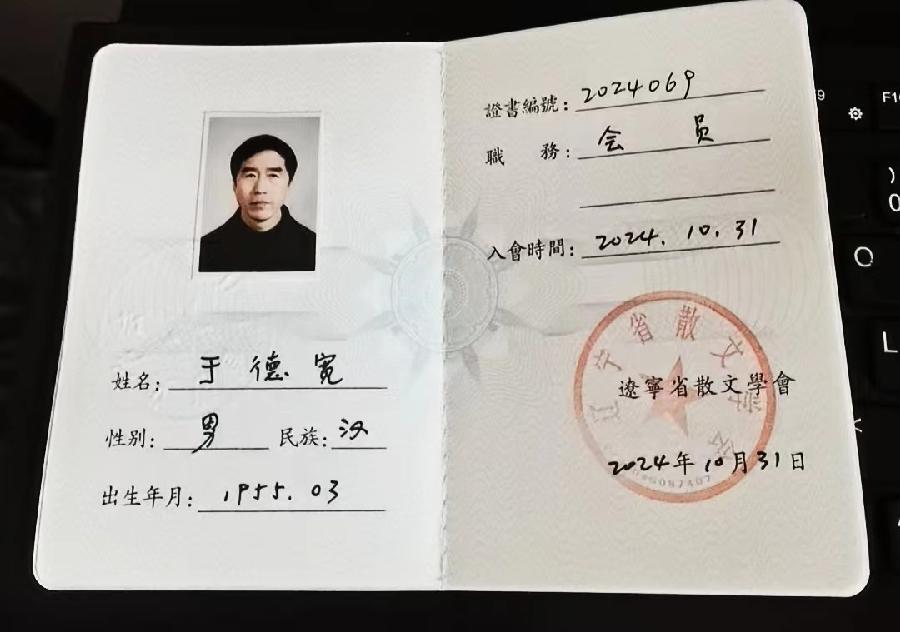 姓名：于德宽
性别：男 民族：汉
出生年月：1955.03
證書編號：2024069
職務：会员
入會時間：2024.10.31
辽宁省散文学会
遼寧省散文學會
2024年10月31日
F10
)
0
O
L